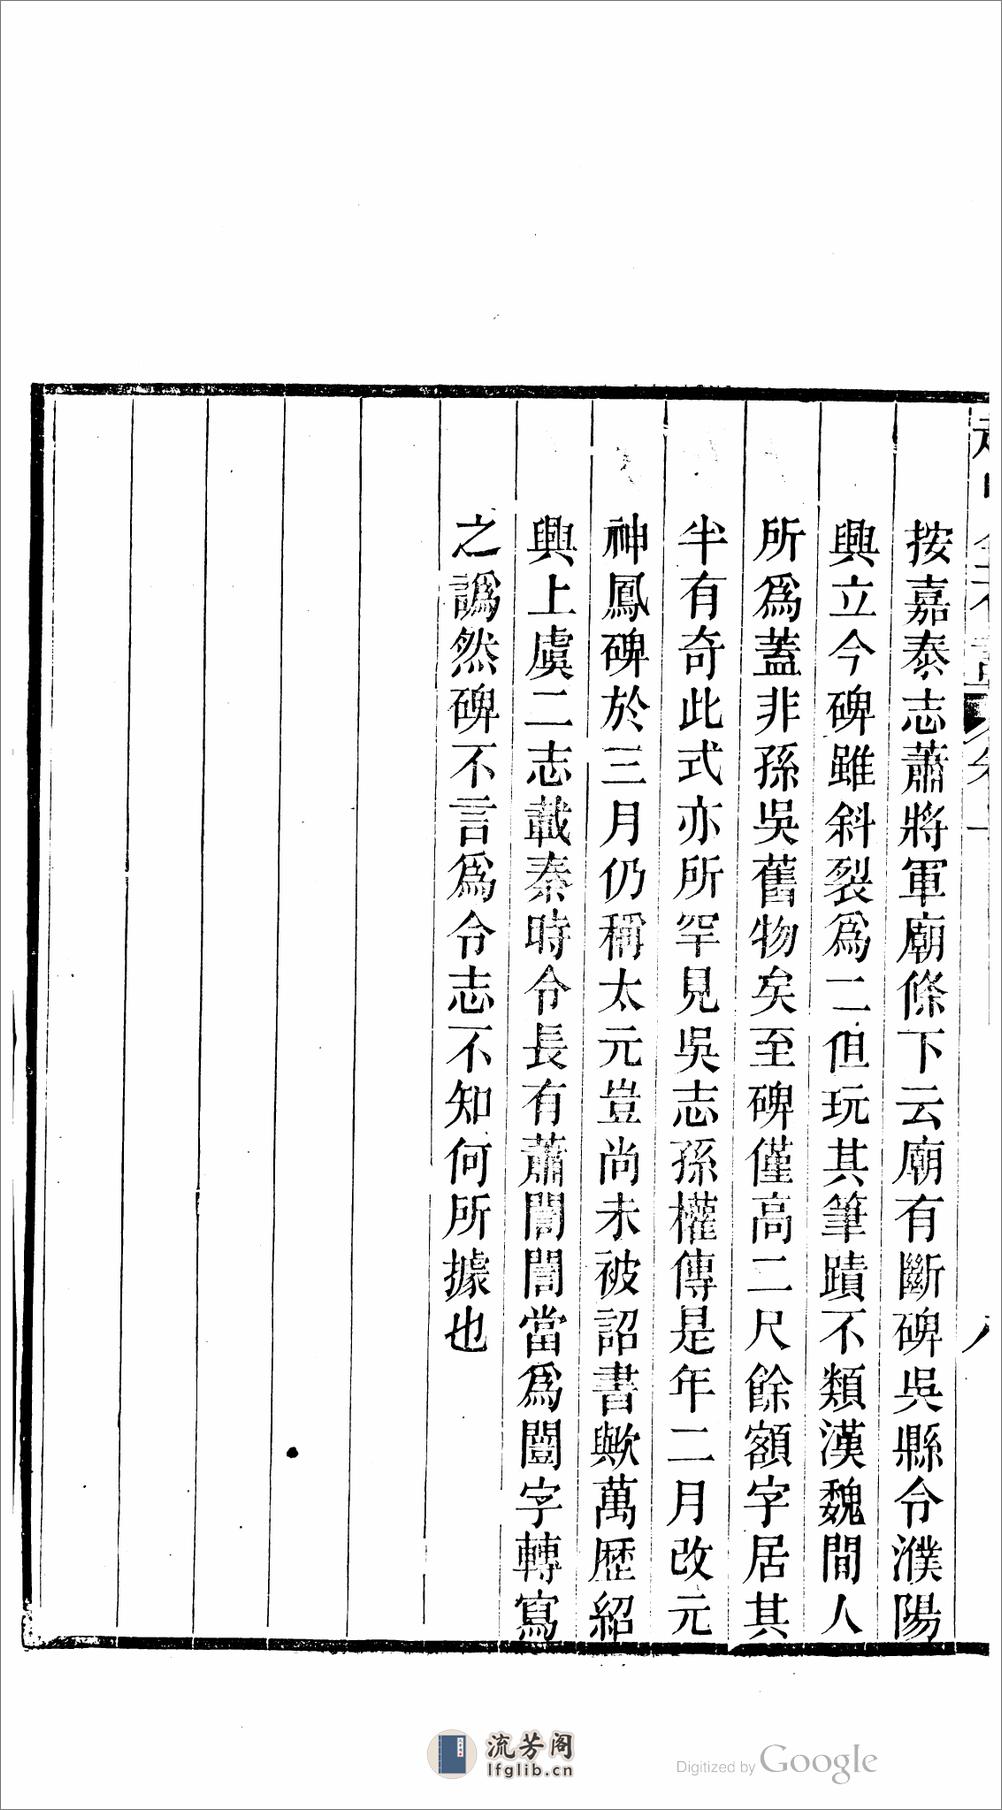 按嘉泰志蕭將軍廟條下云廟有斷碑吳縣令濮陽
興立今碑雖斜裂爲二但玩其筆蹟不類漢魏間人
所爲蓋非孫吳舊物矣至碑僅高二尺餘額字居其
半有奇此式亦所罕見吳志孫權傳是年二月改元
神鳳碑於三月仍稱太元豈尚未被詔書歟萬歷紹
興上虞二志載秦時令長有蕭闇闇當爲闓字轉寫
之譌然碑不言爲令志不知何所據也
流芳阁
lfglib.cn
Digitized by Google